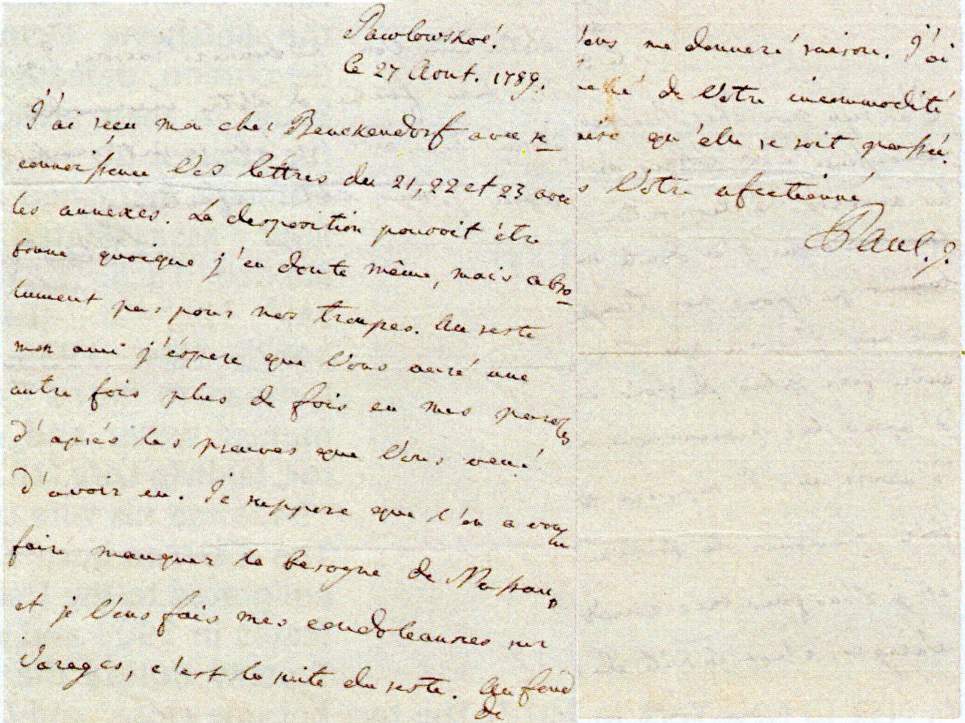 Pawlowskoé!
le 27 Aout. 1789.
J'ai reçu mon cher Benckendorf avec re
connoissance Vos lettres du 21, 22 et 23 avec
les annexes. La desposition pouvoit être
bonne quoique j'en doute même, mais abso
lument pas pour nos troupes. Au reste
mon ami j'éspere que Vous auré une
autre fois plus de fois en mes paroles
d'aprés les preuves que Vous vené
d'avoir eu. Je suppose que l'on a voulu
faire manquer la besogne de Nassau,
et je Vous fais mes condoleances sur
Vareges, c'est la suite du reste. Au fond
de
Vous me donneré raison. J'ai
de Votre incommodité
qu'elle se soit passé.
Votre afectionné
Paul.